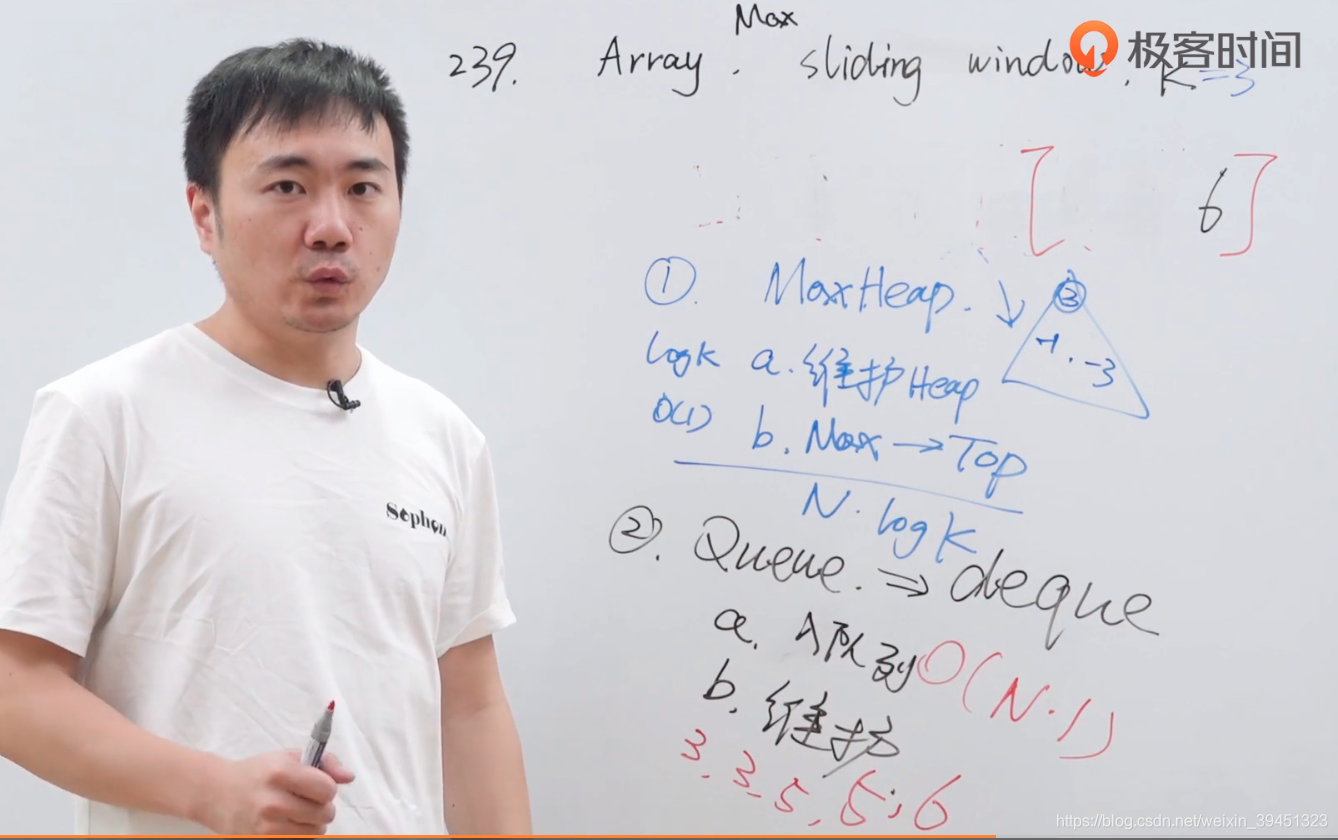 Max
239. Array. sliding window. K=3
极客时间
[ 6]
①. MaxHeap.
3
-1. -3
logK a.维护Heap
O(1) b. Max→Top
N·logK
②. Queue. ⇒ deque
a. 入队列 O(N·1)
b. 维护
3, 3, 5, 5, 6
Sophon
https://blog.csdn.net/weixin_39451323